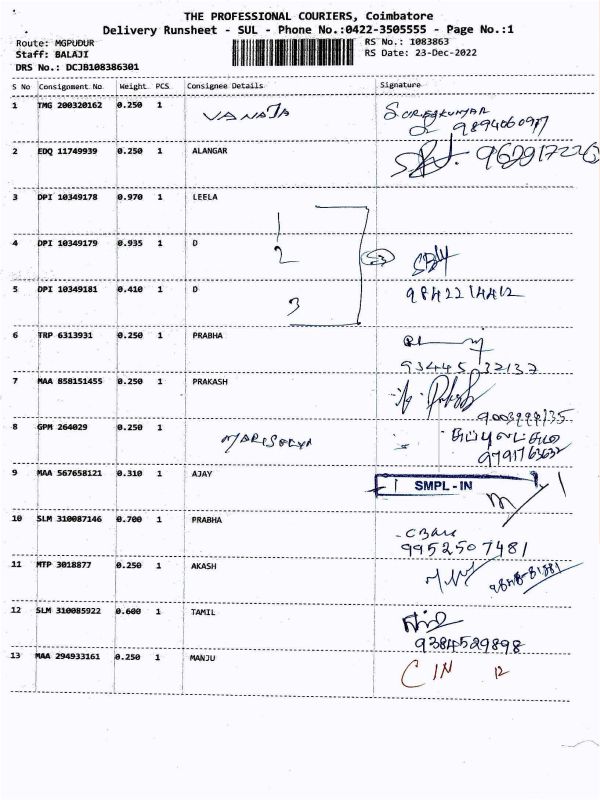 THE PROFESSIONAL COURIERS, Coimbatore
Delivery Runsheet - SUL - Phone No.:0422-3505555 - Page No.:1
Route: MGPUDUR RS No.: 1083863
Staff: BALAJI RS Date: 23-Dec-2022
DRS No.: DCJB108386301
S No Consignment No Weight PCS Consignee Details Signature
1 TMG 200320162 0.250 1 VANAJA
2 EDQ 11749939 0.250 1 ALANGAR
3 DPI 10349178 0.970 1 LEELA
1
4 DPI 10349179 0.935 1 D
2
5 DPI 10349181 0.410 1 D 9842214412
3
6 TRP 6313931 0.250 1 PRABHA
93445 32132
7 MAA 858151455 0.250 1 PRAKASH
8 GPM 264029 0.250 1
9791763632
9 MAA 567658121 0.310 1 AJAY
SMPL - IN
10 SLM 310087146 0.700 1 PRABHA
9952507481
11 MTP 3018877 0.250 1 AKASH
12 SLM 310085922 0.600 1 TAMIL
9384529898
13 MAA 294933161 0.250 1 MANJU
C IN 12